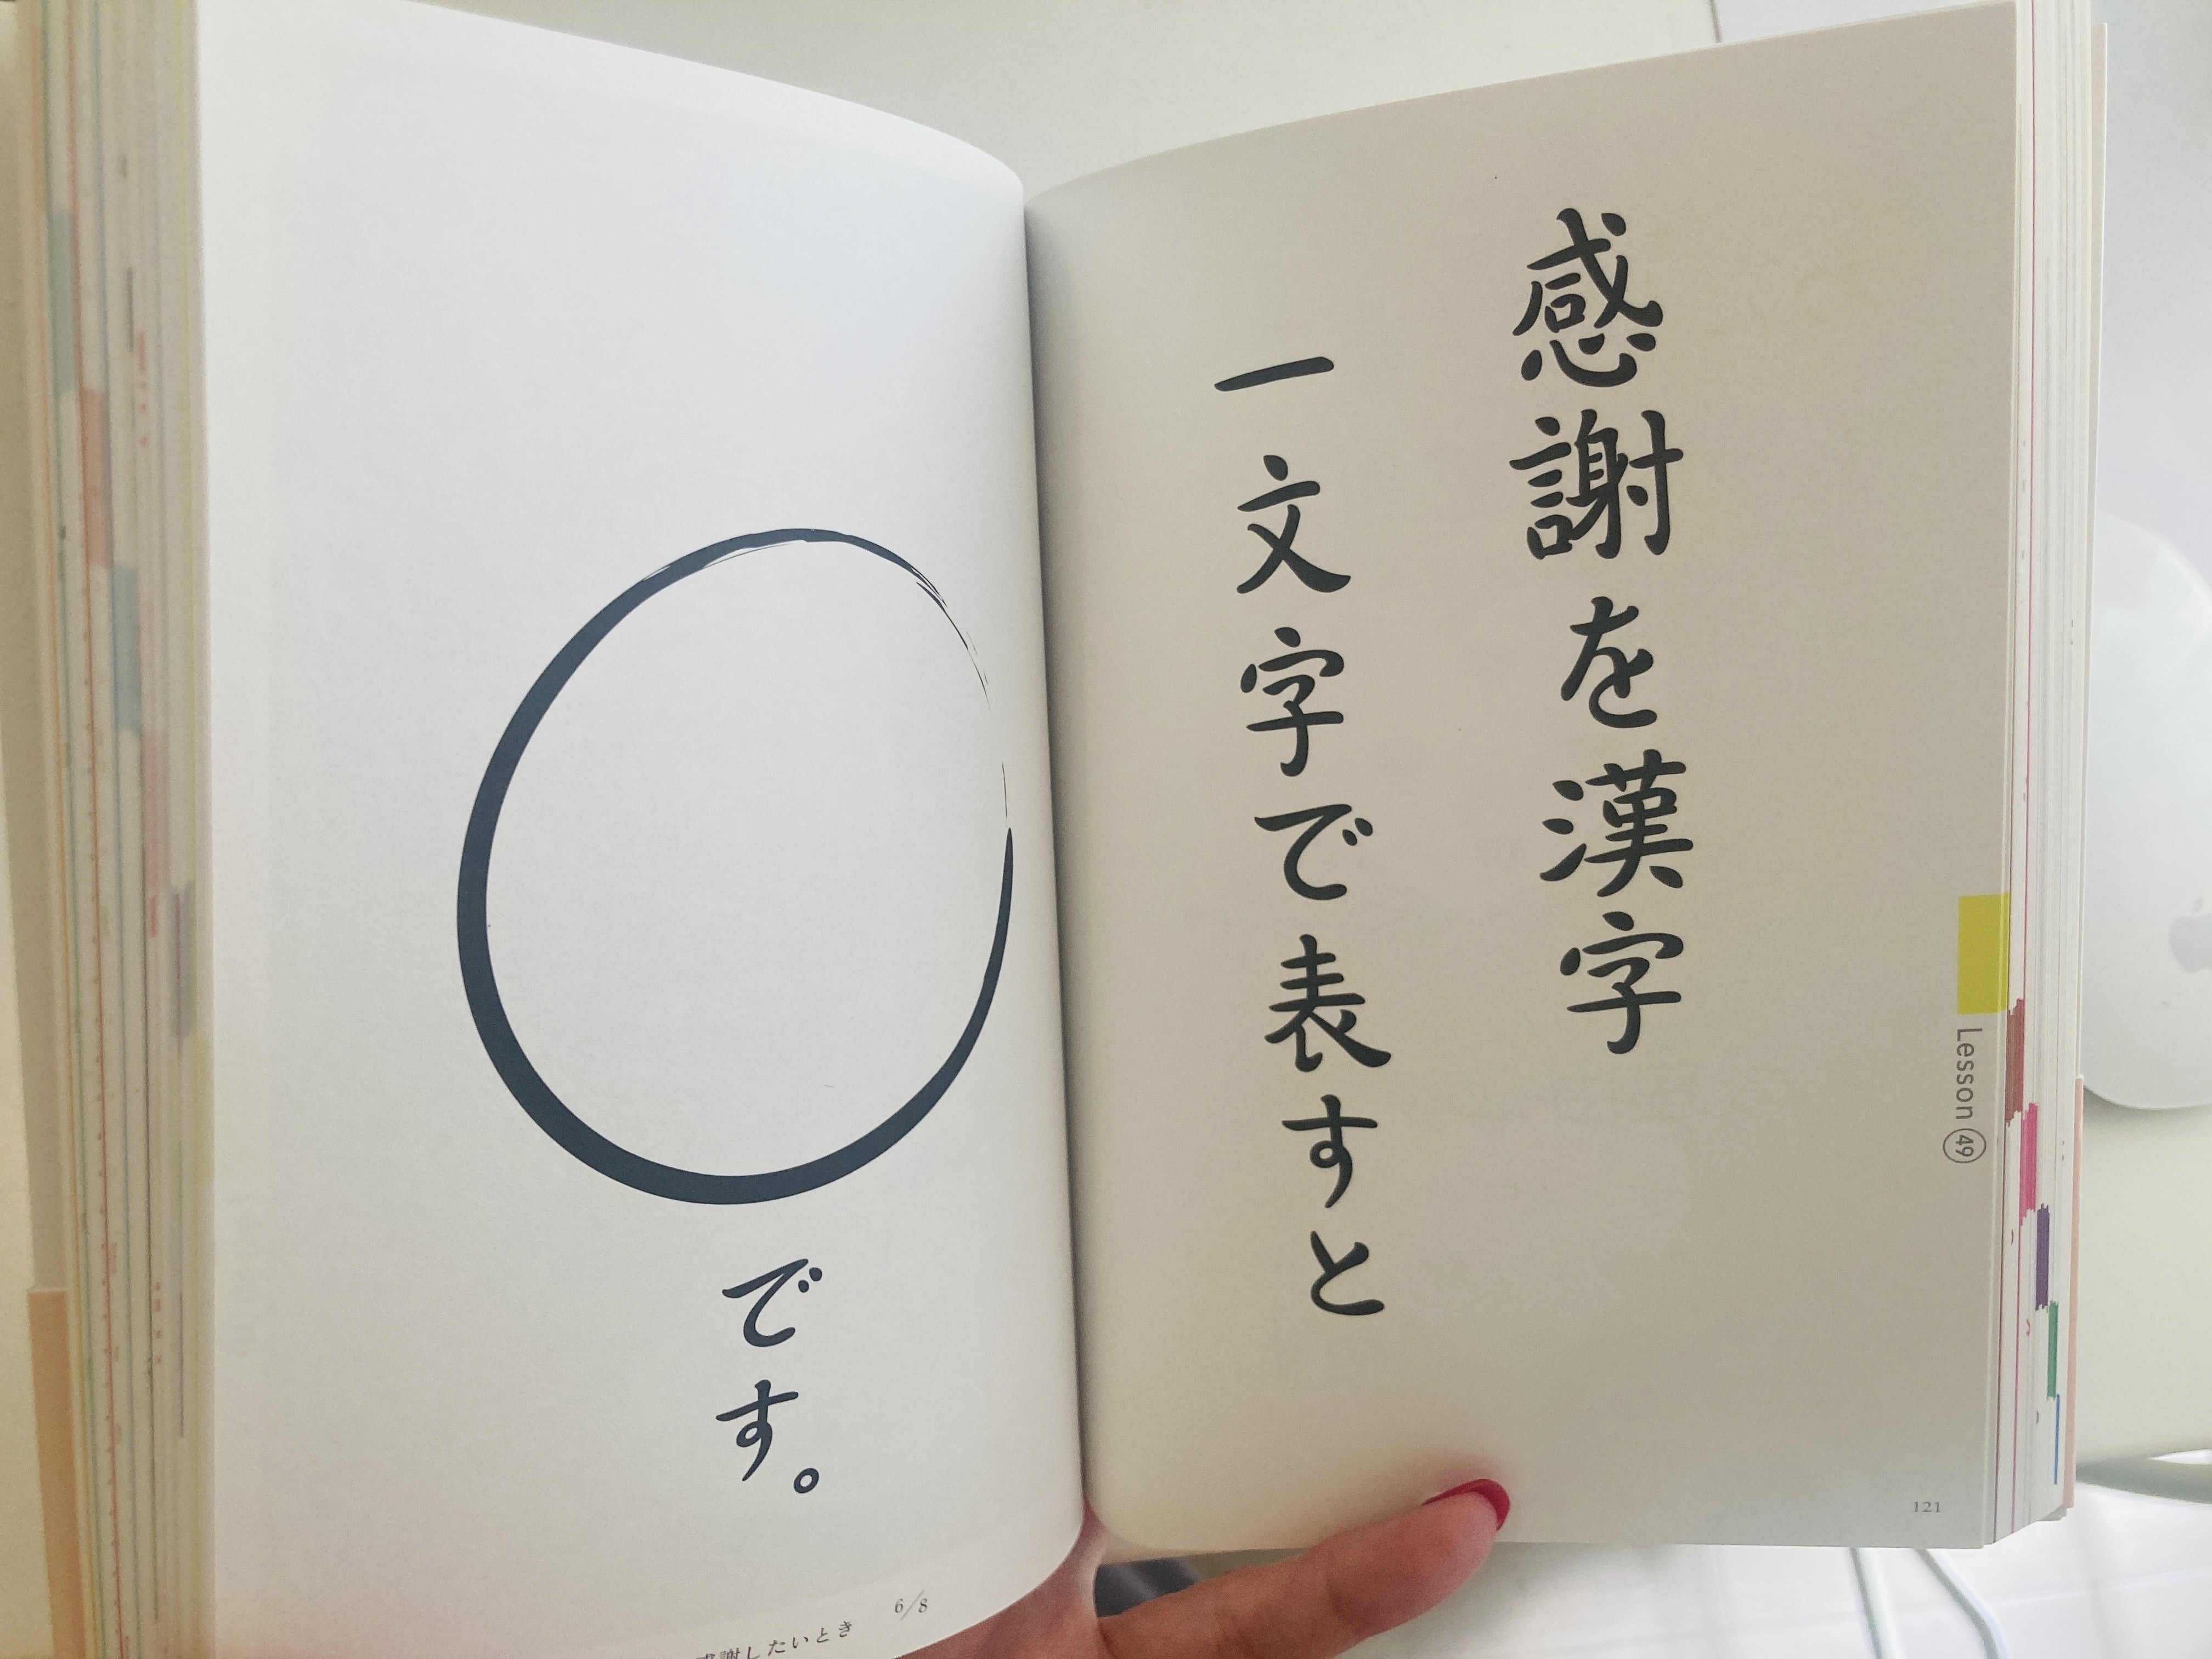 感謝を漢字
一文字で表すと
Lesson 49
121
です。
6/8
感謝したいとき